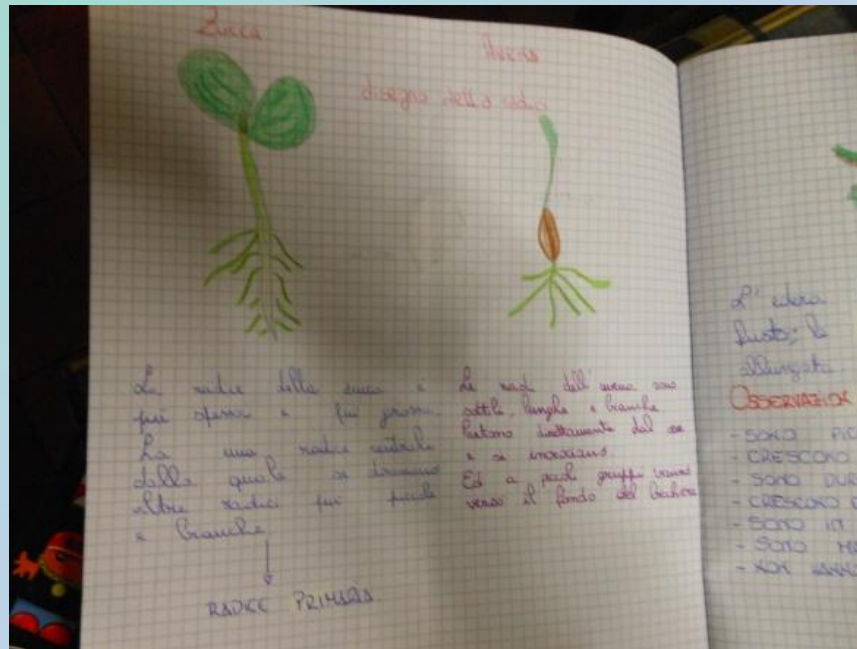 Zucca
Avena
disegno delle radici
La radice della zucca è
più spessa e più grossa
Ha una radice centrale
dalla quale si diramano
altre radici più piccole
e bianche
RADICE PRIMARIA
Le radici dell'avena sono
sottili, lunghe e bianche
Partono direttamente dal
e si incrociano
Ed a piccoli gruppi vanno
verso il fondo del bicchiere
L'edera
fusto; le
allungata
OSSERVAZION
- SONO PIC
- CRESCONO
- SONO DUR
- CRESCONO
- SONO IN
- SONO
- NON HANNO